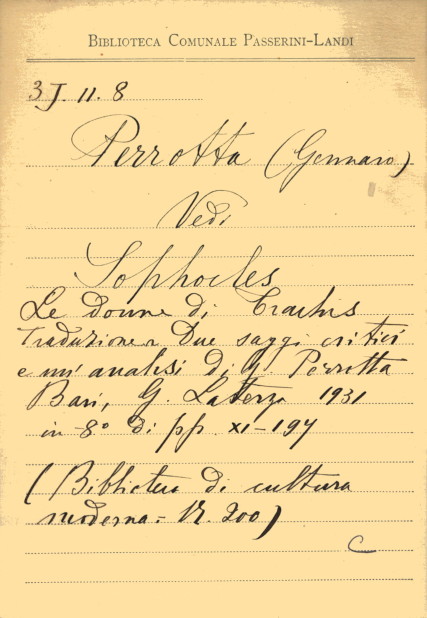 BIBLIOTECA COMUNALE PASSERINI-LANDI
3J. 11. 8
Perrotta (Gennaro)
Vedi
Sophocles
Le donne di Trachis
Traduzione, Due saggi critici
e un'analisi di G. Perrotta
Bari, G. Laterza 1931
in-8º di pp. XI-197
(Biblioteca di cultura
moderna: N. 200)
C